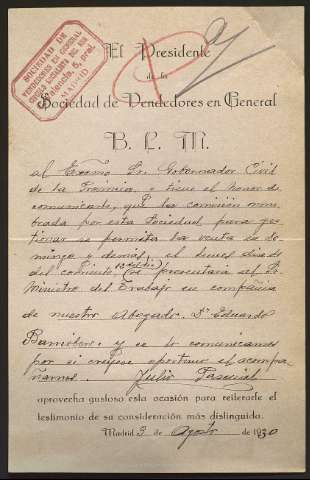 SOCIEDAD DE
VENDEDORES EN GENERAL
Valencia, 5, pral.
MADRID
El Presidente
de la
Sociedad de Vendedores en General
B. L. M.
al Excmo Sr. Gobernador Civil
de la Provincia y tiene el honor de
comunicarle, que la comisión nom-
brada por esta Sociedad para ges-
tionar se permita la venta en do-
mingo y demás, el lunes
del corriente se presentará al Sr
Ministro del Trabajo en compañia
de nuestro Abogado. Dn Eduardo
y se lo comunicamos
por si creyese oportuno el acompa-
ñarnos. Julio Pascual
aprovecha gustoso esta ocasión para reiterarle el
testimonio de su consideración más distinguida.
Madrid 9 de Agosto de 1930